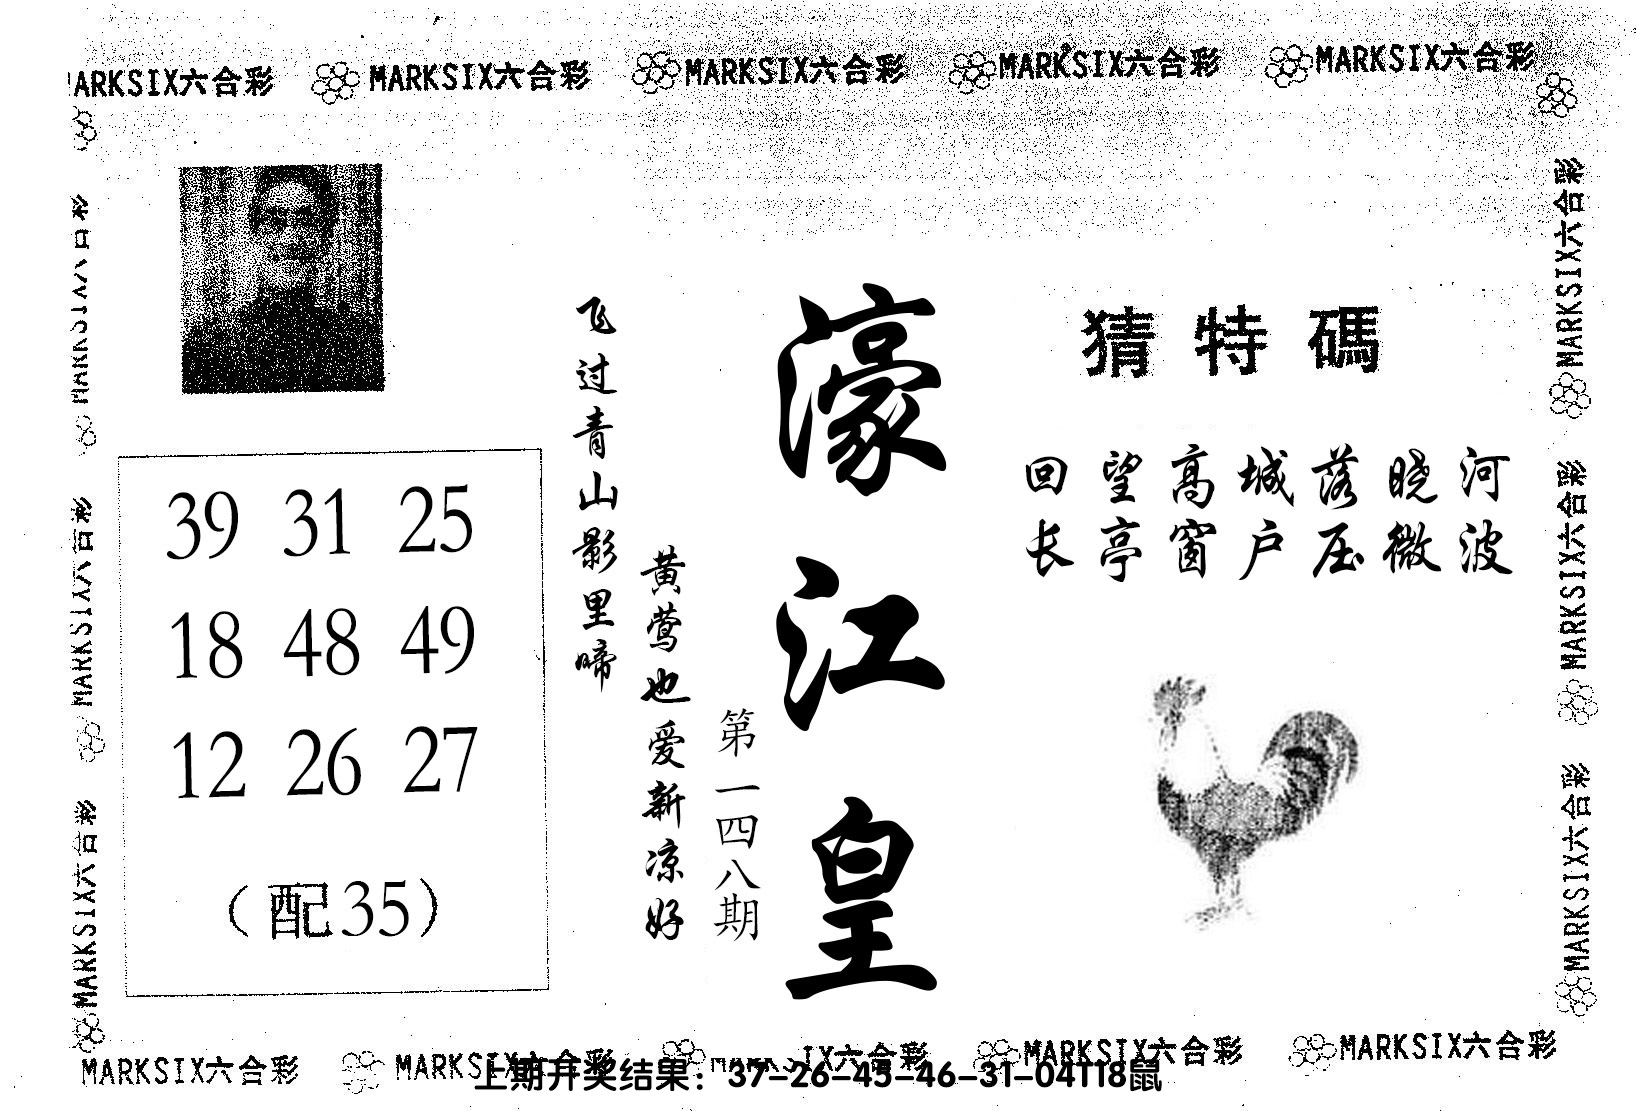 MARKSIX六合彩 MARKSIX六合彩 MARKSIX六合彩 MARKSIX六合彩
ARKSIX六合彩
猜特碼
回望高城落晓河
长亭窗户压微波
濠江皇
第一四八期
黄莺也爱新凉好
飞过青山影里啼
39 31 25
18 48 49
12 26 27
（配35）
MARKSIX六合彩
MARKSIX六合彩
MARKSIX六合彩
MARKSIX六合彩
MARKSIX六合彩
MARKSIX六合彩 MARKSIX六合彩 六合彩 MARKSIX六合彩 MARKSIX六合彩
上期开奖结果：37-26-45-46-31-04T18鼠